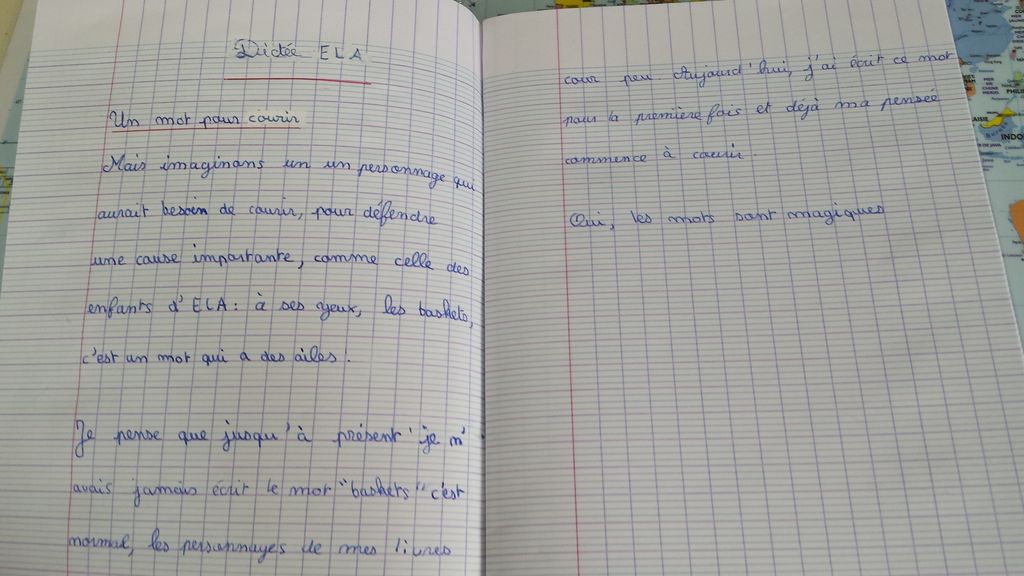 Dictée ELA
Un mot pour courir
Mais imaginons un un personnage qui
aurait besoin de courir, pour défendre
une cause importante, comme celle des
enfants d'ELA : à ses yeux, les baskets,
c'est un mot qui a des ailes.
Je pense que jusqu'à présent je n'
avais jamais écrit le mot "baskets" c'est
normal, les personnages de mes livres
cour peu. Aujourd'hui, j'ai écrit ce mot
pour la première fois et déjà ma pensée
commence à courir.
Oui, les mots sont magiques
INDO